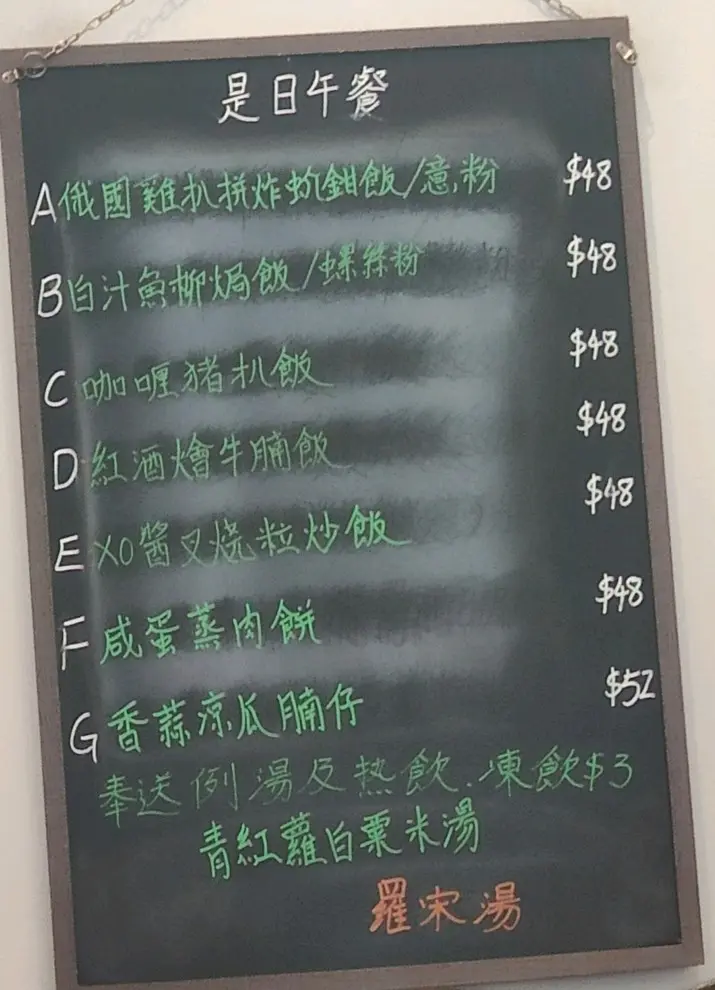 是日午餐
A俄國雞扒拼炸蚧鉗飯/意粉 $48
B白汁魚柳焗飯/螺絲粉 $48
C咖喱猪扒飯 $48
D紅酒燴牛腩飯 $48
E XO醬叉燒粒炒飯 $48
F咸蛋蒸肉餅 $48
G香蒜凉瓜腩仔 $52
奉送例湯及热飲.凍飲$3
青紅蘿白粟米湯
羅宋湯